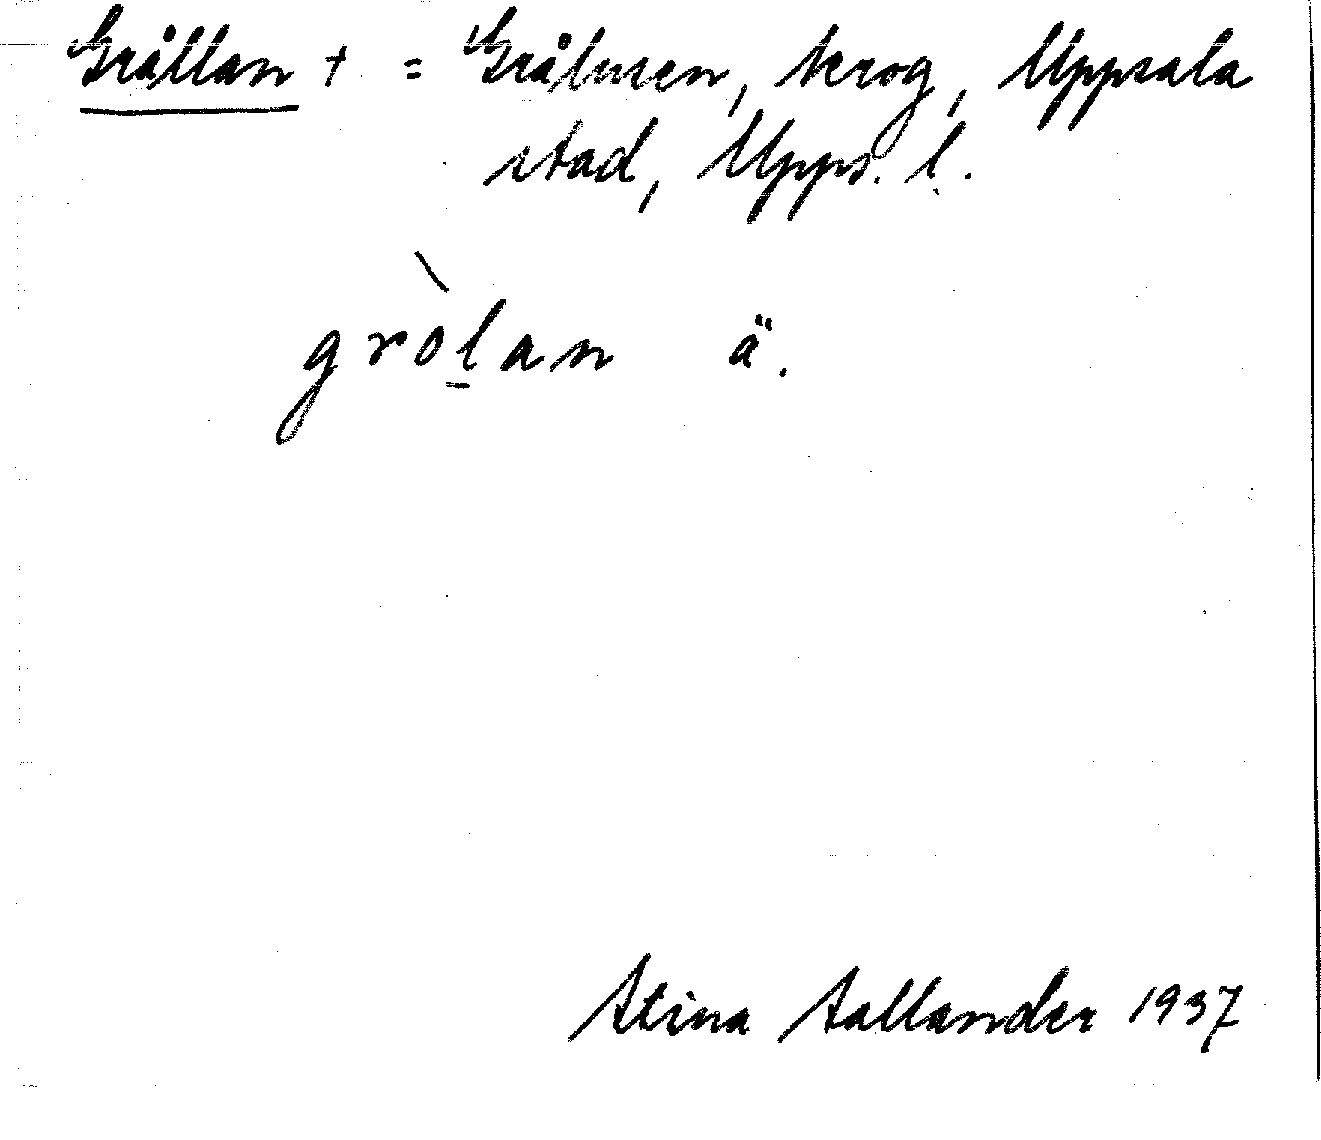 Grållan † = Gråbusen, krog, Uppsala
stad, Upps. l.
gròlan ä.
Stina Sallander 1937